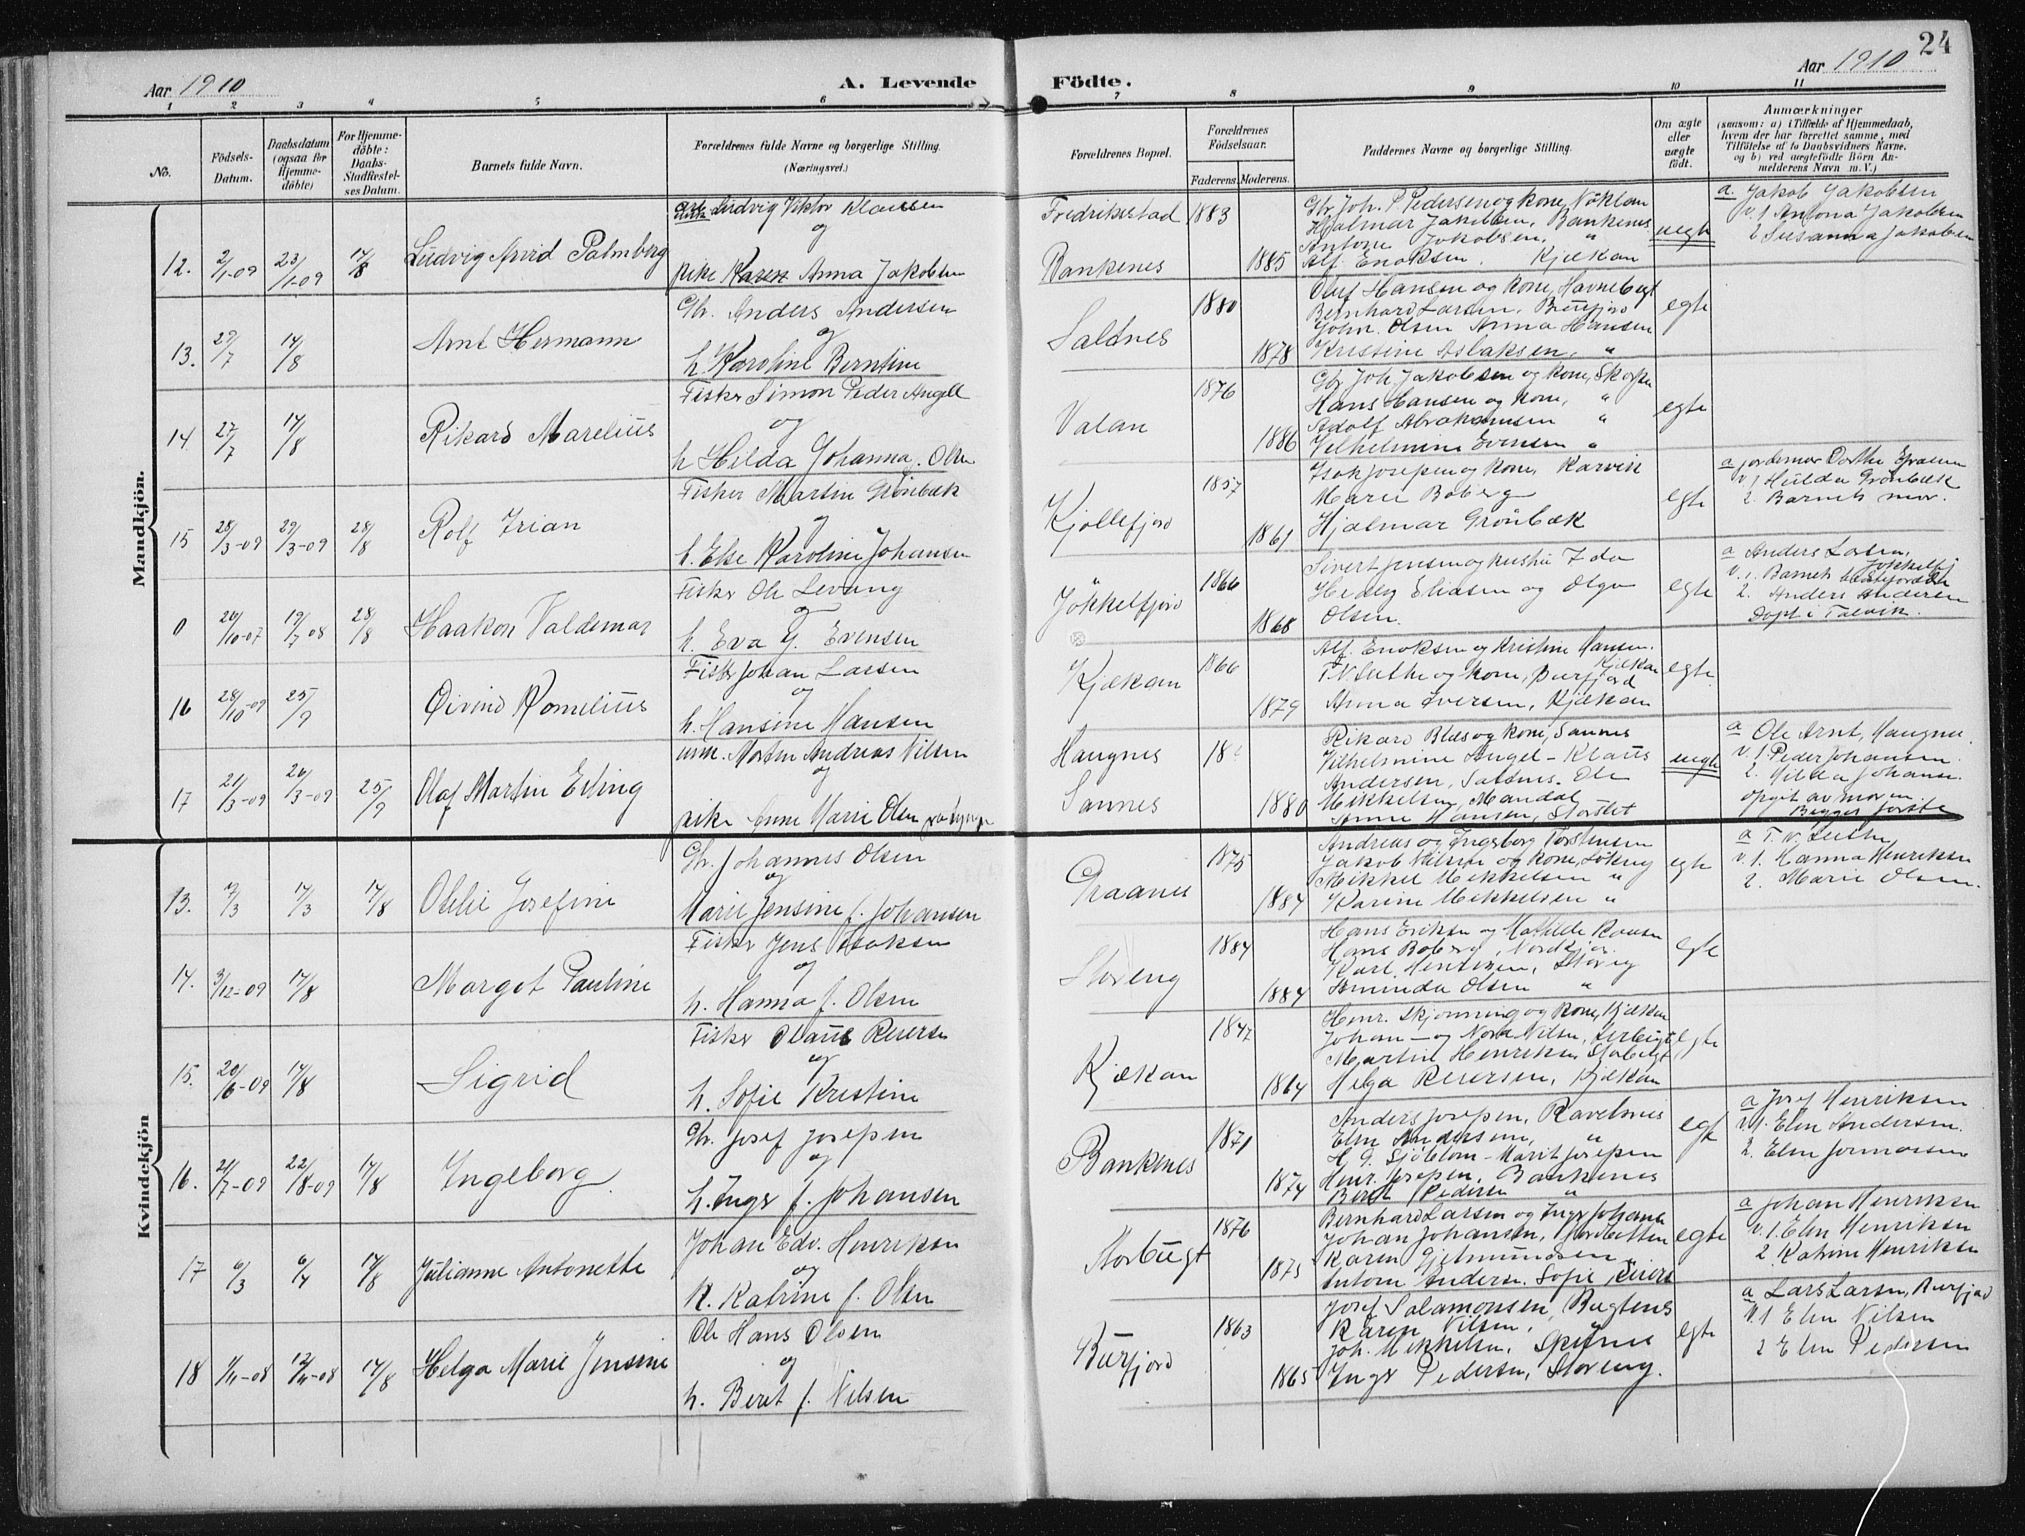 24
Aar 1910
A. Levende Födte.
Aar 1910
1 2 3 4 5 6 7 8 9 10 11
No.
Födsels-Datum.
Daabsdatum (ogsaa for Hjemmedöbte)
For Hjemmedöbte: Daabs-Stadfæstelses Datum.
Barnets fulde Navn.
Forældrenes fulde Navne og borgerlige Stilling.
(Næringsvei.)
Forældrenes Bopæl.
Forældrenes Födselsaar.
Faderens. Moderens.
Faddernes Navne og borgerlige Stilling.
Om ægte eller uægte födt.
Anmærkninger
(saasom: a) i Tilfælde af Hjemmedaab, hvem der har forrettet samme, med Tilföielse af to Daabsvidners Navne, og b) ved uægtefödte Börn Anmelderens Navn m. V.)
Mandkjön.
12. 2/1-09 23/1-09 17/8 Ludvig Arvid Palmberg
Ludvig Viktor Klaussen
og
pike Karen Anna Jakobsen
Fredrikstad 1883
Bankenes 1885
Gbr. Joh. P. Pedersen og kone, Nöklan
Hjalmar Jakobsen, Bankenes
Antone Jakobsen, "
Alf. Enoksen. Kjækan
uegte
a. Jakob Jakobsen
v. 1 Antona Jakobsen
2 Susanna Jakobsen
13. 29/7 14/8 Arnt Hermann
Gbr. Anders Andersen
og
h. Karoline Berntine
Saltnes 1880 1878
Oluf Hansen og kone, Havnebugt
Bernhard Larsen, Burfjord
Johr. Olsen Anna Hansen
Kristine Aslaksen, "
egte
14 27/7 14/8 Rikard Marelius
Fisker Simon Peder Angell
og
h Hilda Johanna f. Olsen
Valan 1876 1886
Gbr. Joh. Jakobsen og kone,
Hans Hansen og kone, "
Adolf Abrahamsen "
Vilhelmine Evensen "
egte
15 28/3-09 29/3-09 28/8 Rolf Irian
Fisker Martin Grönbæk
og
h. Else Karoline Johansen
Kjöllefjord 1857 1861
Isak Josepsen og kone, Karvik
Marie Boberg
Hjalmar Grönbæk
egte
a jordemor Dorthe
v. 1 Hulda Grönbæk
2. Barnets mor.
0 20/10-07 19/7 08 28/8 Haakon Valdemar
Fisker Ole Levang
og
h. Eva f. Evensen
Jökkelfjord 1866 1868
Sivert Jensen og hustru Ida
Hedley Eliasen og Olga
Olsen.
egte
a Anders Larsen,
Jökkelfj
v. 1. Barnets
2. Anders Andersen
Döpt i Talvik.
16 28/10-09 25/9 Öivind Kornelius
Fisker Johan Larsen
og
h. Hansine Hansen
Kjækan 1866 1879
Alf. Enoksen og Kristine Hansen.
Kjækan
T. V. Luthe og kone, Burfjord
Anna Iversen, Kjækan
egte
17 21/3-09 26/3-09 25/9 Olaf Martin Erling
umk. Morten Andreas Nilsen
og
pike Anne Marie Olsen
Haugnes 18
Sannes 1880
Rikard Blæs og kone, Sannes
Vilhelmine Angel - Klaus
Andersen, Saltnes. Ole
Mikkelsen, Mandal
Anne Hansen, Storslet
uegte
a Ole Arnt, Haugnes
v. 1 Peder Johansen
2. Hilda Johanse
opgit av moren
Begges förste
Kvindekjön
13. 7/3 17/3 17/8 Otelie Josefine
Gbr. Johannes Olsen
og
Marie Jensine f. Johansen
Graanes 1875 1884
Andreas og Ingeborg Torstensen
Jakob Nilsen og kone, Lökeng
Mikkel Mikkelsen "
Karine Mikkelsen "
egte
a T. V. Luthe
v. 1. Hanna Henriksen
2. Marie Olsen.
14. 3/12-09 17/8 Margot Pauline
Fisker Jens Isaksen
og
h. Hanna f. Olsen
Storeng 1884 1884
Hans Eriksen og Matilde
Hans Boberg, Nordkjos.
Karl Henriksen, Storeng
Aminda Olsen "
egte
15. 20/6-09 17/8 Sigrid
Fisker Olaus Reiersen
og
h. Sofie Kristine
Kjækan 1847 1864
Henr. Skjönning og kone, Kjækan
Johan - og Nora Nilsen,
Martin Henriksen Storbugt
Helga Reiersen, Kjækan
egte
16. 21/7-09 22/8-09 17/8 Ingeborg
Gbr. Josef Josepsen
og
h. Inger f. Johansen
Bankenes 1871 1874
Anders Josepsen, Ravelsnes
Elen Andersen, "
H. G. Sjöblom - Marit Josepsen
Henr. Josepsen, Bankenes
Berit Pedersen "
egte
a Josef Henriksen
v. 1. Elen Andersen.
2. Elen Jonnassen
17 6/3 6/4 17/8 Julianne Antonette
Johan Edv. Henriksen
og
K. Katrine f. Olsen
Storbugt 1876 1875
Bernhard Larsen og Inger Johanne
Johan Johansen, Nordbotten
Karen Gjetmundsen
Antone Andersen. Sofie Reiers
egte
a Johan Henriksen
v. 1. Elen Henriksen
2. Katrine Henriksen
18 1/11-08 12/11-08 17/8 Helga Marie Jensine
Ole Hans Olsen
og
h. Beret f. Nilsen
Burfjord 1863 1865
Josef Salamonsen, Bugtenes
Karen Nilsen,
Joh. Mikkelsen,
Inger Pedersen, Storeng.
egte
a Lars Larsen, Burfjord
v. 1 Elen Nilsen
2 Elen Pedersen